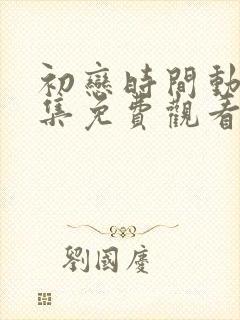 初戀時間動
集免費觀看
劉國慶